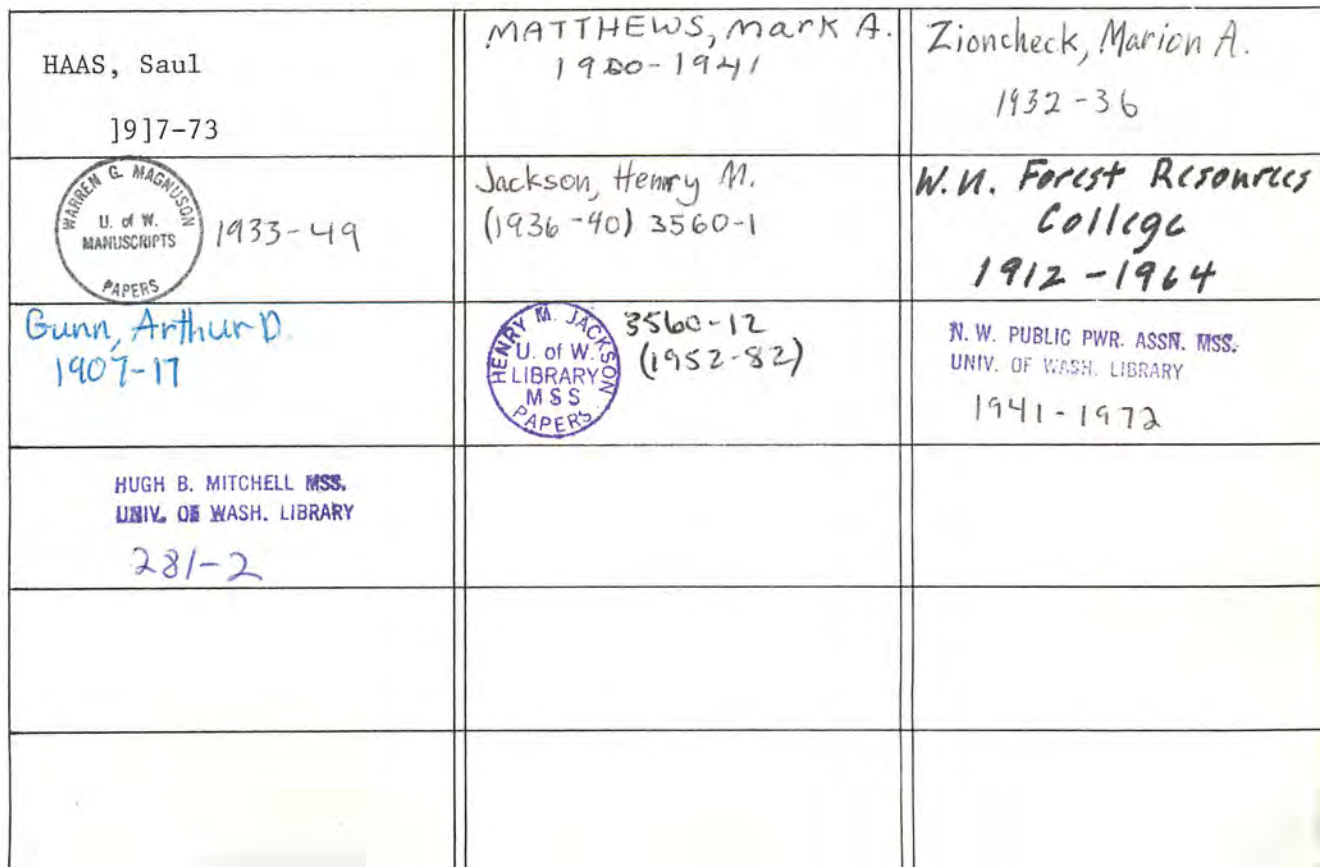 HAAS, Saul
]9]7-73
MATTHEWS, Mark A.
1900-1941
Zioncheck, Marion A.
1932-36
WARREN G. MAGNUSON
U. of W.
MANUSCRIPTS
PAPERS
1933-49
Jackson, Henry M.
(1936-40) 3560-1
W.U. Forest Resources
College
1912-1964
Gunn, Arthur D.
1907-17
HENRY M. JACKSON
U. of W.
LIBRARY
MSS
PAPERS
3560-12
(1952-82)
N.W. PUBLIC PWR. ASSN. MSS.
UNIV. OF WASH. LIBRARY
1941-1972
HUGH B. MITCHELL MSS.
UNIV. OF WASH. LIBRARY
281-2